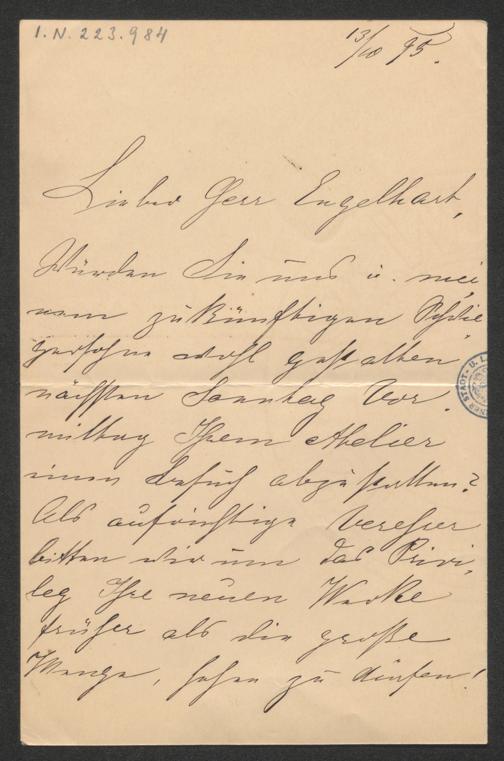 I.N. 223.984
13/10 95.
Lieber Herr Engelhart,
Würden Sie uns u. mei-
nem zukünftigen Schwie-
gersohne wohl gestatten
nächsten Sonntag Vor-
mittag Ihrem Atelier
einen Besuch abzustatten?
Als aufrichtige Verehrer
bitten wir um das Privi-
leg Ihre neuen Werke
früher als die große
Menge, sehen zu dürfen!